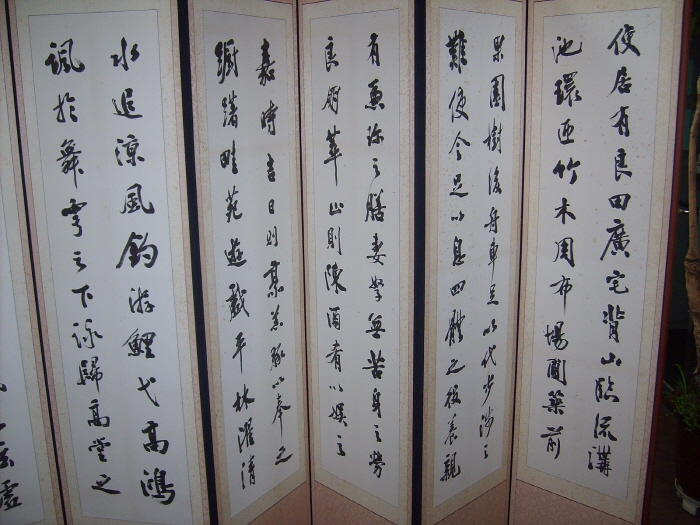 使居有良田廣宅背山臨流溝
池環匝竹木周布場圃築前
果園樹後舟車足以代步涉之
難使令足以息四體之役養親
有兼珍之膳妻孥無苦身之勞
良朋萃止則陳酒肴以娛之
嘉時吉日則烹羔豚以奉之
躕躇畦苑遊戲平林濯清
水追涼風釣游鯉弋高鴻
諷於舞雩之下詠歸高堂之
玄虛